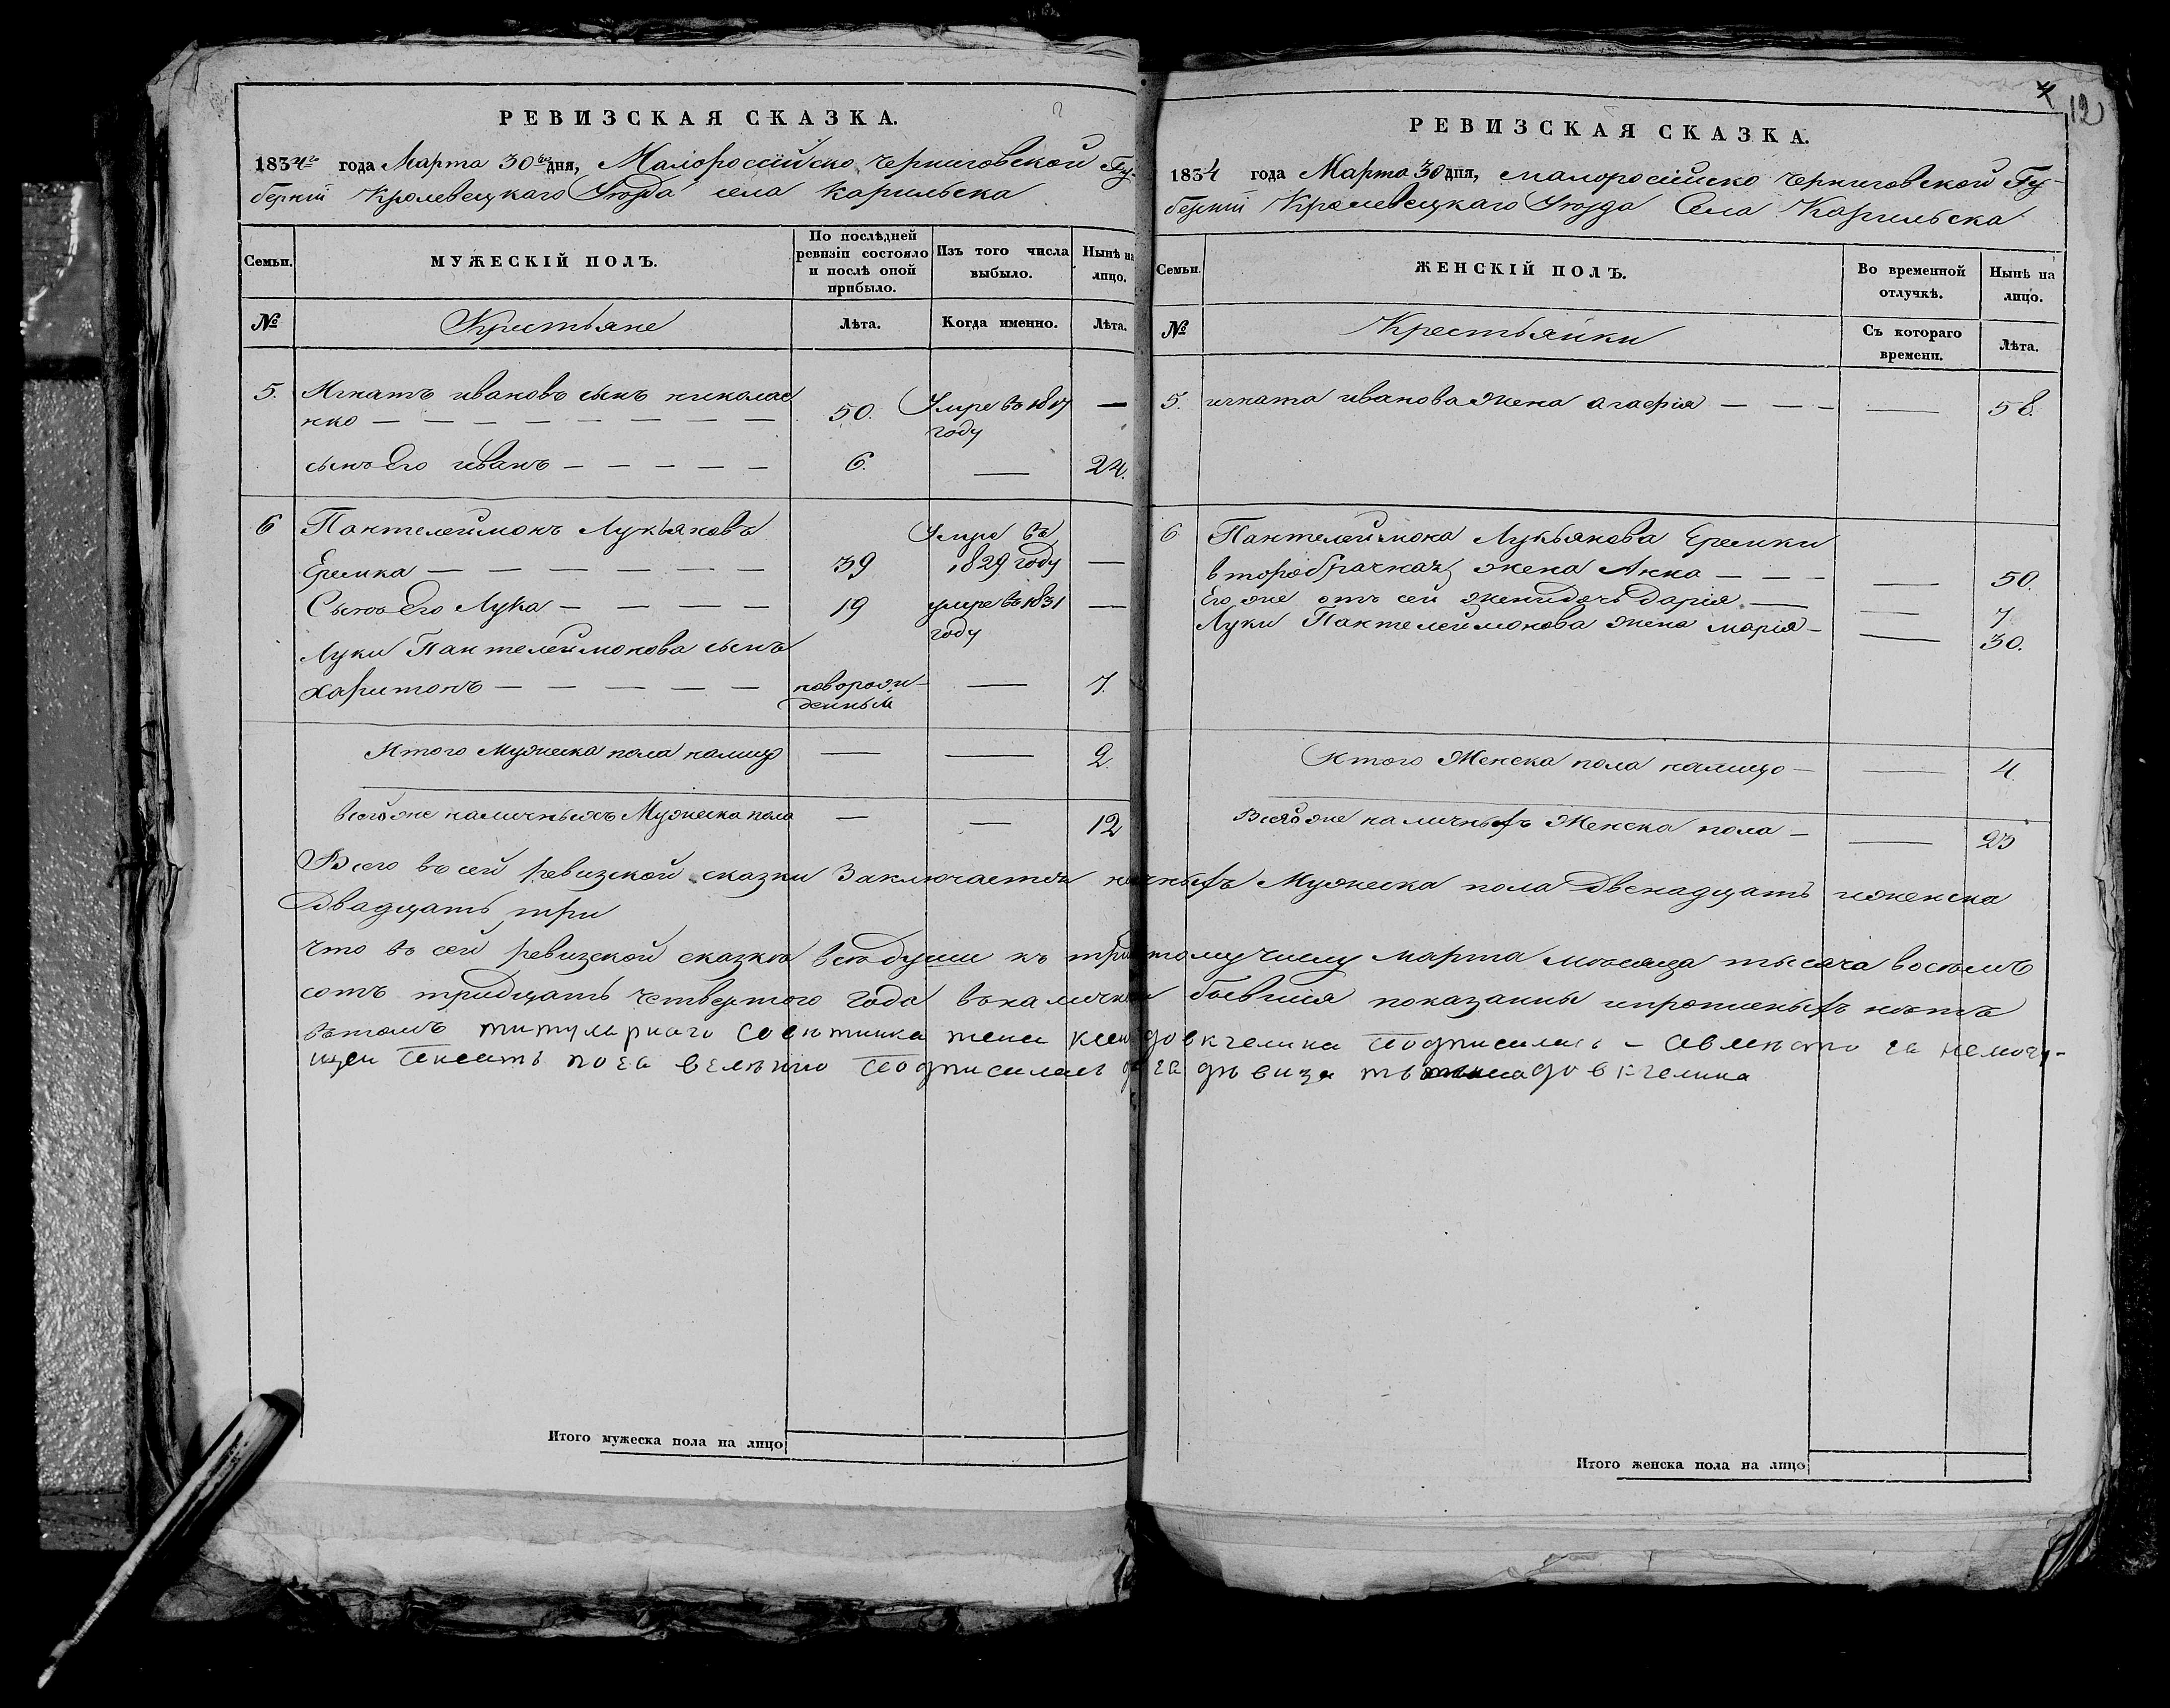 РЕВИЗСКАЯ СКАЗКА.
1834го года Марта 30го дня, Малоросiйско Черниговской Гу-
бернiи Кролевецкаго Уѣзда села Карильска
Семьи.
МУЖЕСКІЙ ПОЛЪ.
По послѣдней ревизіи состояло и послѣ оной прибыло.
Изъ того числа выбыло.
Нынѣ на лицо.
№
Крестьяне
Лѣта.
Когда именно.
Лѣта.
5. Игнатъ ивановъ сынъ николае 50. Умре въ 1817 —
нко — — — — — — — — году
сынъ Его иванъ — — — — — 6. — 24.
6 Пантелеймонъ Лукьяновъ Умре въ
Еремка — — — — — — — 39 1829 году —
Сынъ Его Лука — — — — 19 умре въ 1831 —
году
Луки Пантелеймонова сынъ
харитонъ — — — — — — новорож- — 7.
денный
Итого Мужеска пола налицо — — 2.
всего же наличныхъ Мужеска пола — — 12
РЕВИЗСКАЯ СКАЗКА.
4
12
1834 года Марта 30 дня, малоросiйско Черниговской Гу-
бернiи Кролевецкаго Уѣзда Села Карильска
Семьи.
ЖЕНСКІЙ ПОЛЪ.
Во временной отлучкѣ.
Нынѣ на лицо.
№
Крестьянки
Съ котораго времени.
Лѣта.
5. игната иванова жена агафiя — — — — 58.
6 Пантелеймона Лукьянова Еремки
второбрачная жена Анна — — — — 50.
Его же отъ сей жены дочь Дарiя — — 7
Луки Пантелеймонова жена марiя — — 30.
Итого Женска пола налицо — — 4.
Всего же наличныхъ Женска пола — — 23
Всего въ сей ревизской сказки Заключается Мужеска пола Двенадцать и женска
Двадцать три
Что въ сей ревизской сказкѣ всѣ души къ числу марта мѣсяца тысяча восемъ
сотъ тридцать четвертого года бывшiя показанны и прописныхъ нѣтъ
вътомъ титулярнаго совѣтника жена подписалась —
Итого мужеска пола на лицо
Итого женска пола на лицо